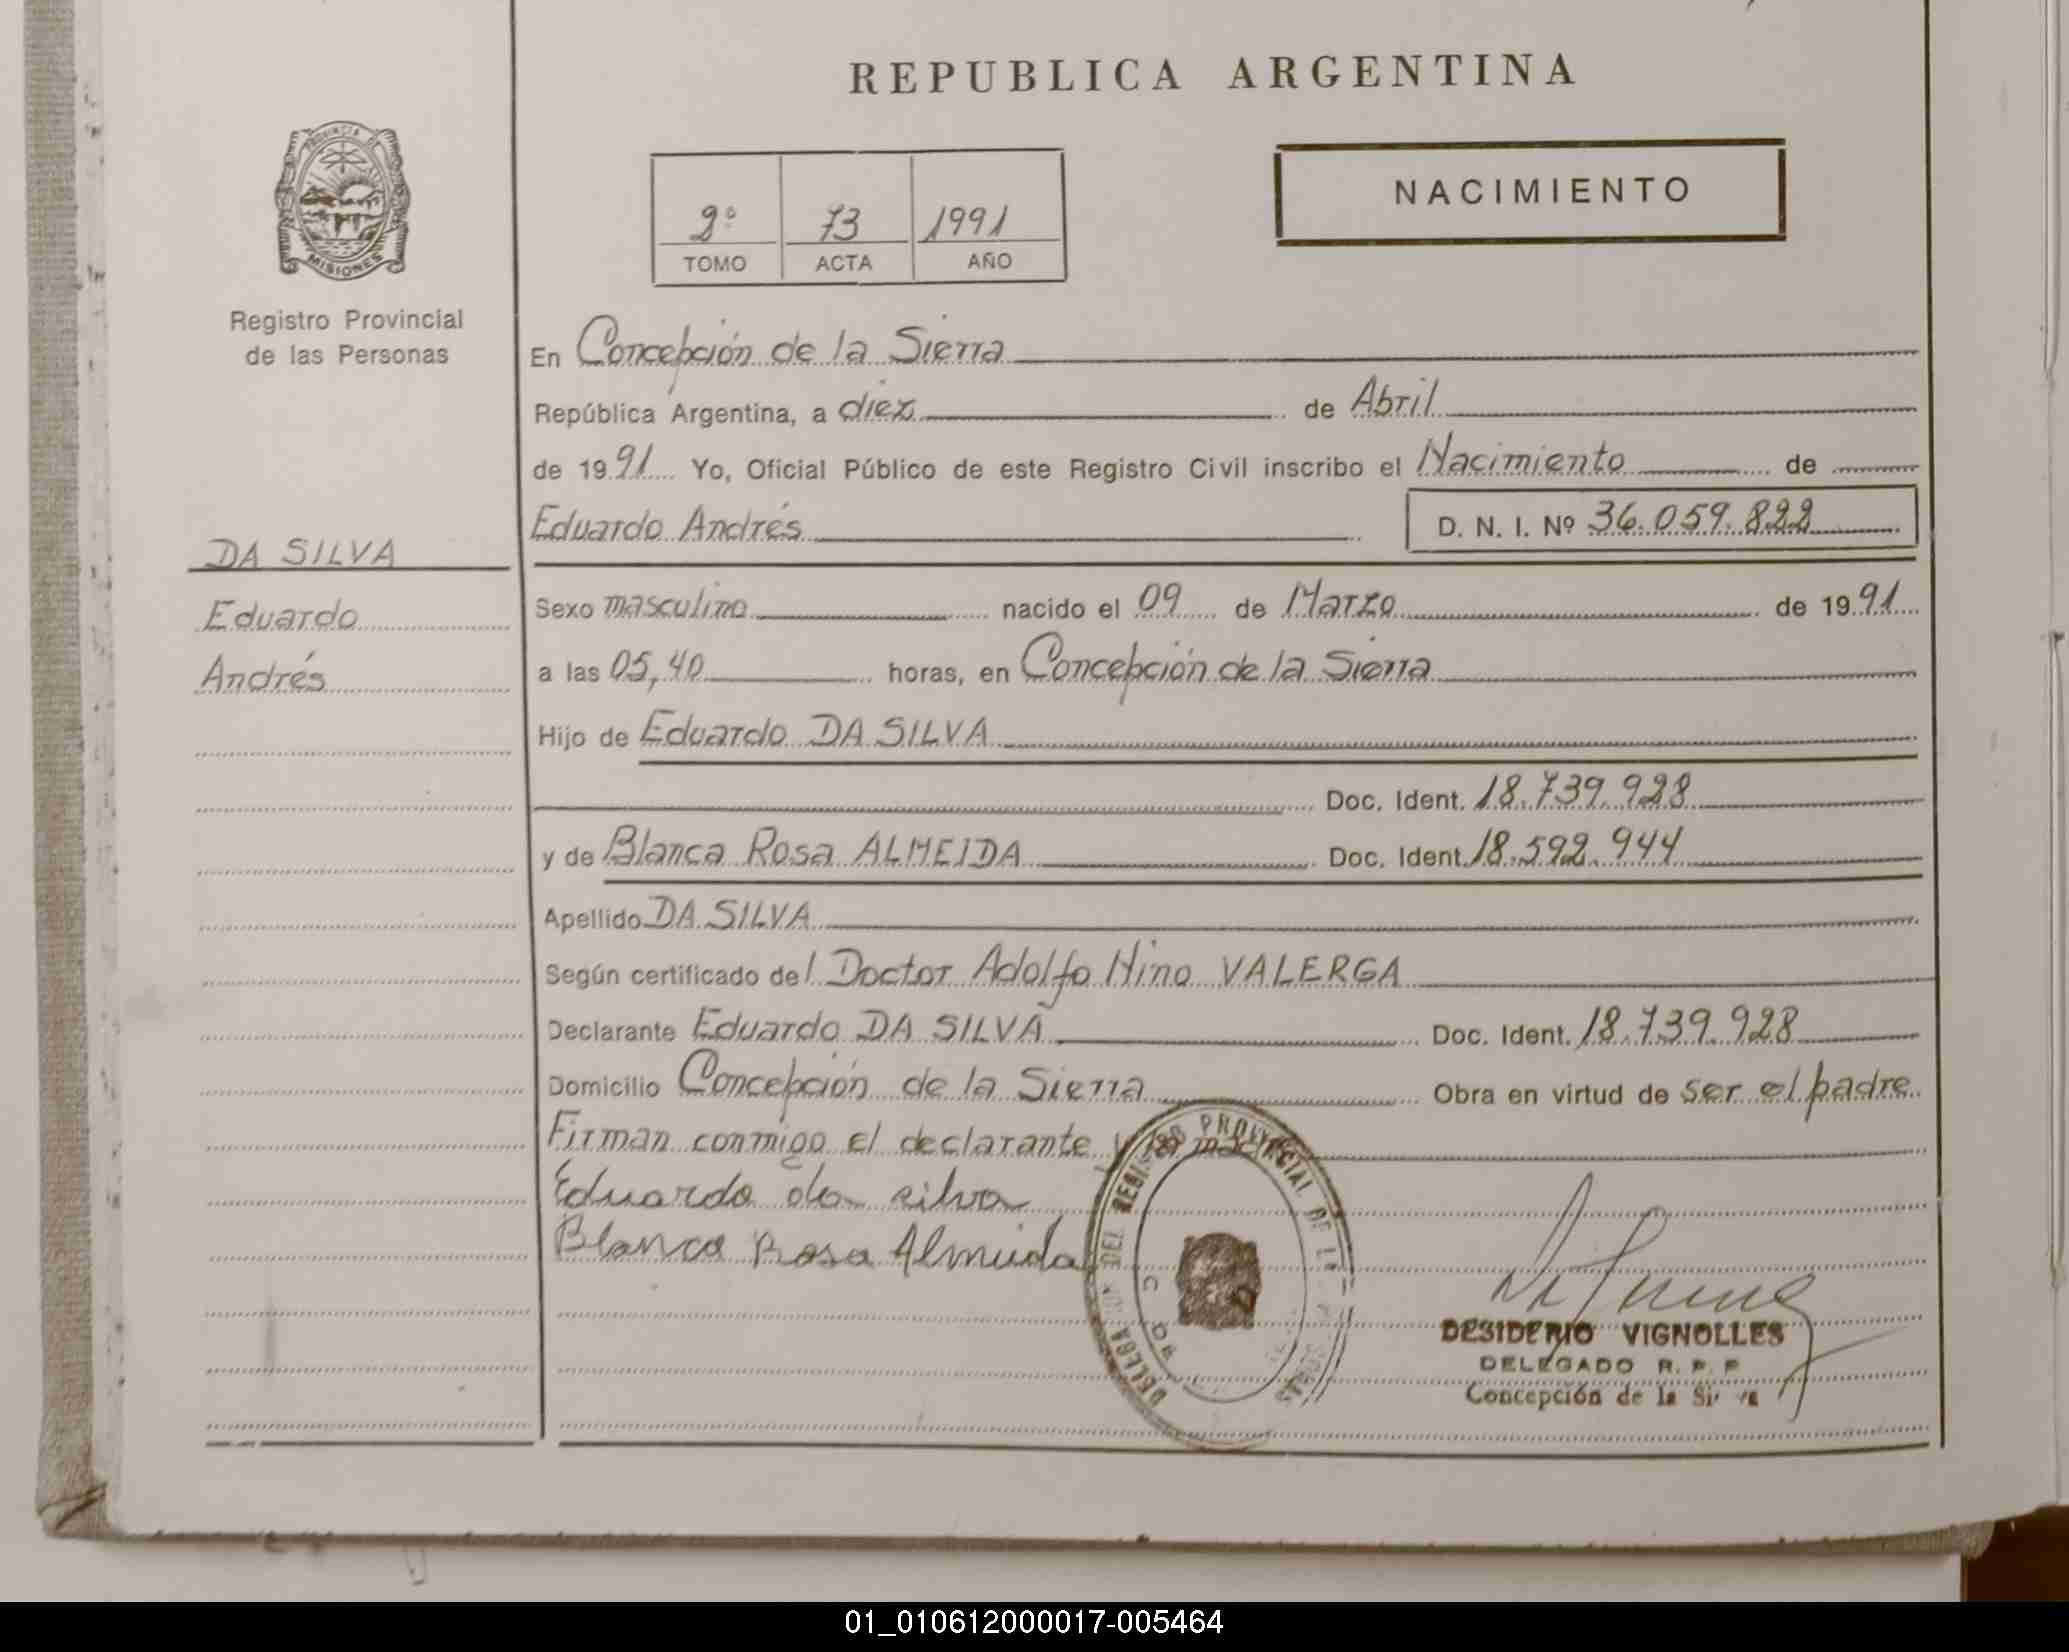 REPUBLICA ARGENTINA
PROVINCIA DE
MISIONES
Registro Provincial
de las Personas
2º 73 1991
TOMO ACTA AÑO
NACIMIENTO
En Concepción de la Sierra
República Argentina, a diez de Abril
de 1991 Yo, Oficial Público de este Registro Civil inscribo el Nacimiento de
Eduardo Andrés D. N. I. Nº 36.059.822
DA SILVA
Eduardo
Andrés
Sexo masculino nacido el 09 de Marzo de 1991
a las 05,40 horas, en Concepción de la Sierra
Hijo de Eduardo DA SILVA
Doc. Ident. 18.739.928
y de Blanca Rosa ALMEIDA Doc. Ident. 18.592.944
Apellido DA SILVA
Según certificado del Doctor Adolfo Nino VALERGA
Declarante Eduardo DA SILVA Doc. Ident. 18.739.928
Domicilio Concepción de la Sierra Obra en virtud de ser el padre
Firman conmigo el declarante y la madre
Eduardo da silva
Blanca Rosa Almeida
DEL REGISTRO PROVINCIAL DE L
DESIDERIO VIGNOLLES
DELEGADO R. P. P
Concepción de la
01_010612000017-005464